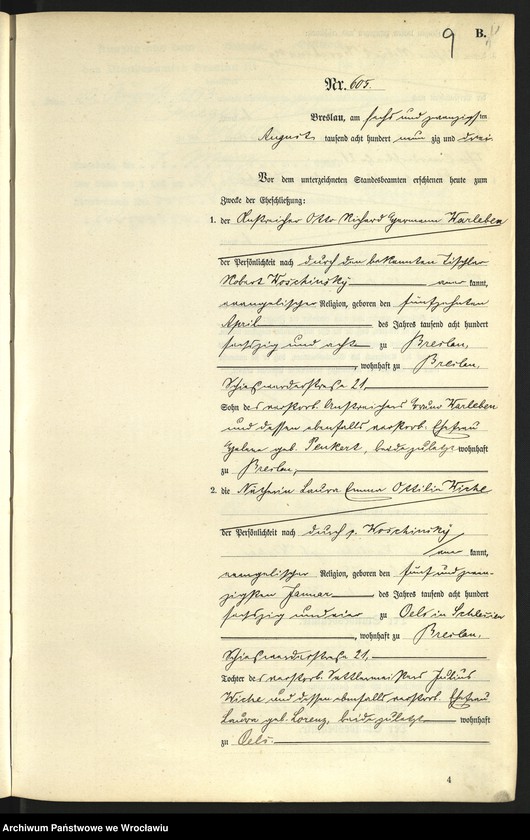 9 B.
Nr. 605.
Breslau, am sechs und zwanzigsten
August tausend acht hundert neun zig und drei
Vor dem unterzeichneten Standesbeamten erschienen heute zum
Zwecke der Eheschließung:
1. der Anstreicher Otto Richard Hermann Karleben
der Persönlichkeit nach durch den bekannten Tischler
Robert Koschinsky aner kannt,
evangelischer Religion, geboren den fünfzehnten
April des Jahres tausend acht hundert
sechszig und acht zu Breslau,
, wohnhaft zu Breslau,
Schieswerderstraße 21,
Sohn des verstorb. Anstreichers Karleben
und dessen ebenfalls verstorb. Ehefrau
geb. Penkert, beide zuletzt wohnhaft
zu Breslau,
2. die Nätherin Laura Emma Ottilie Kirche
der Persönlichkeit nach durch p. Koschinsky
aner kannt,
evangelischer Religion, geboren den fünf und zwan-
zigsten Januar des Jahres tausend acht hundert
sechszig und vier zu Oels in Schlesien
, wohnhaft zu Breslau,
Schieswerderstraße 21,
Tochter des verstorb. Sattlermeisters Julius
Kirche und dessen ebenfalls verstorb. Ehefrau
Laura geb. Lorenz, beide zuletzt wohnhaft
zu Oels.
4
Archiwum Państwowe we Wrocławiu